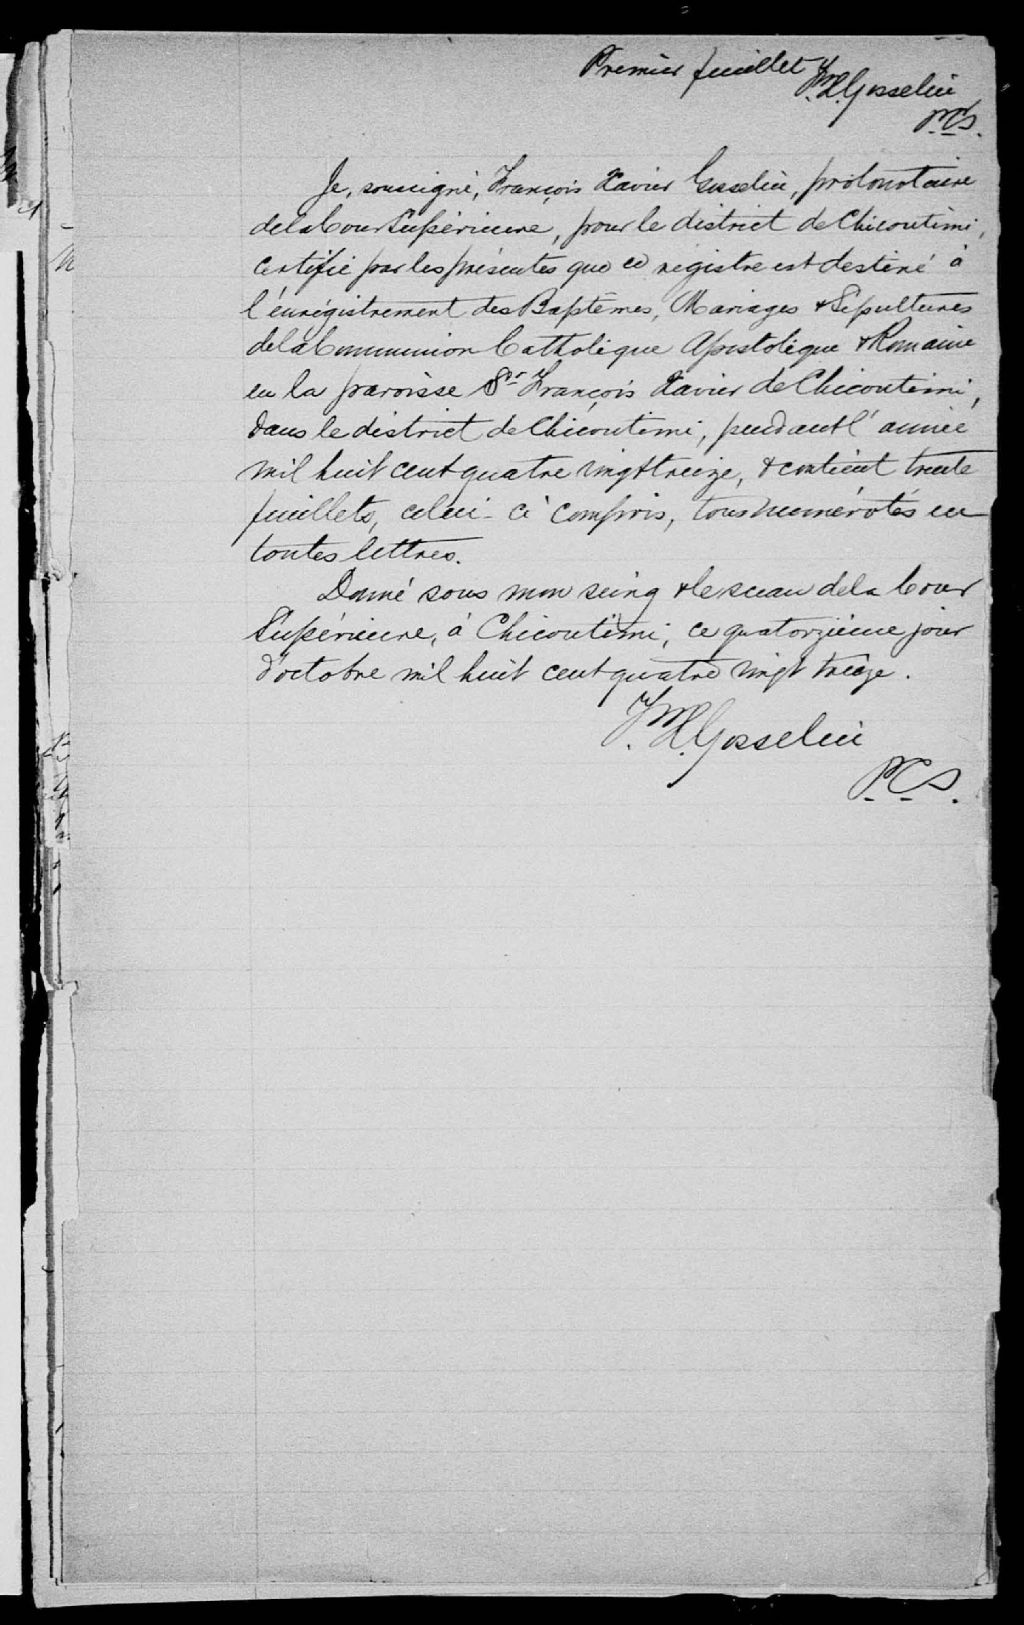 Premier feuillet F. X. Gosselin
P.C.S.
Je, soussigné, François Xavier Gosselin, protonotaire
de la Cour Supérieure, pour le district de Chicoutimi,
certifie par les présentes que ce registre est destiné à
l'enrégistrement des Baptêmes, Mariages & Sépultures
de la Communion Catholique Apostolique & Romaine
en la paroisse St François Xavier de Chicoutimi,
dans le district de Chicoutimi, pendant l'année
mil huit cent quatre vingt treize, & contient trente
feuillets, celui-ci compris, tous numérotés en
toutes lettres.
Donné sous mon seing & le sceau de la Cour
Supérieure, à Chicoutimi, ce quatorzième jour
d'octobre mil huit cent quatre vingt treize.
F. X. Gosselin
P.C.S.